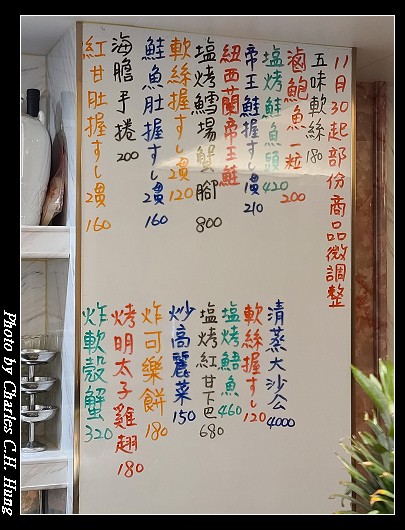 11月30起部份商品微調整
五味軟絲 180
滷鮑魚一粒 200
塩烤鮭魚頭 420
帝王鮭握すし2貫 210
紐西蘭帝王鮭
塩烤鱈場蟹腳 800
軟絲握すし2貫 120
鮭魚肚握すし2貫 160
海膽手捲 200
紅甘肚握すし2貫 160
清蒸大沙公 4000
軟絲握すし 120
塩烤鯃魚 460
塩烤紅甘下巴 680
炒高麗菜 150
炸可樂餅 180
烤明太子雞翅 180
炸軟殼蟹 320
Photo by Charles C.H. Hung